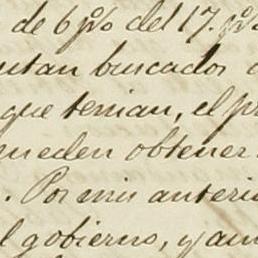 de 6 p% del 17. p%
ntan buscados
que tenian, el pr
ueden obtener
. Por mis anterio
l gobierno, y aun